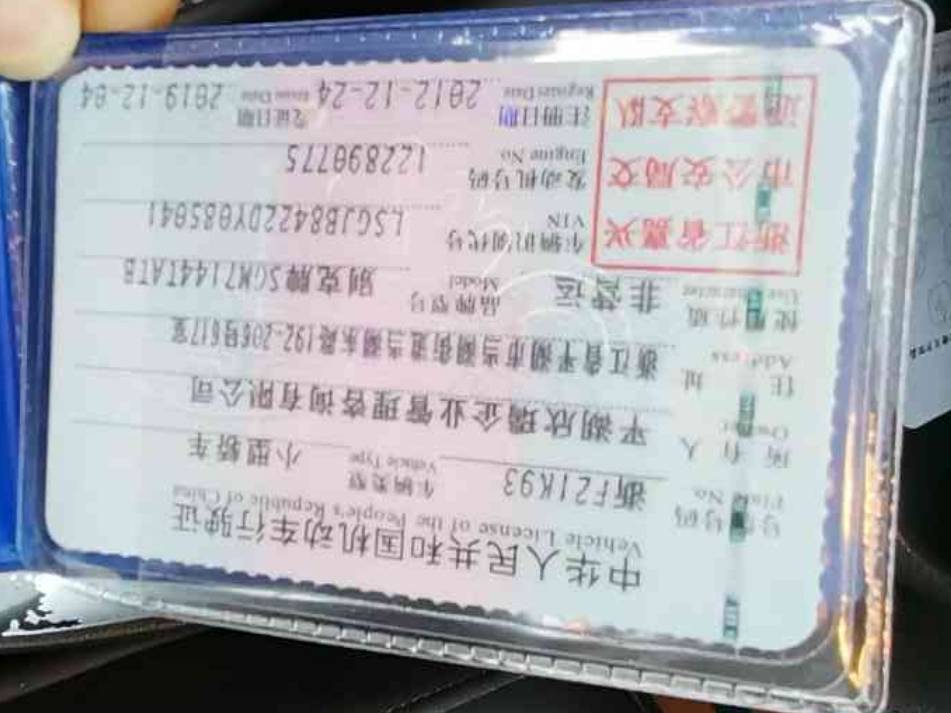 中华人民共和国机动车行驶证
Vehicle License of the People's Republic of China
号牌号码 浙F21K93 车辆类型 小型轿车
Plate No. Vehicle Type
所有人 平湖欣瑞企业管理咨询有限公司
Owner
住址 浙江省平湖市当湖街道当湖东路192-206号617室
Address
使用性质 非营运 品牌型号 别克牌SGM7144TATB
Use Character Model
浙江省嘉兴市公安局交通警察支队
车辆识别代号 LSGJB8422DY085041
VIN
发动机号码 122890775
Engine No.
注册日期 2012-12-24 发证日期 2019-12-04
Register Date Issue Date